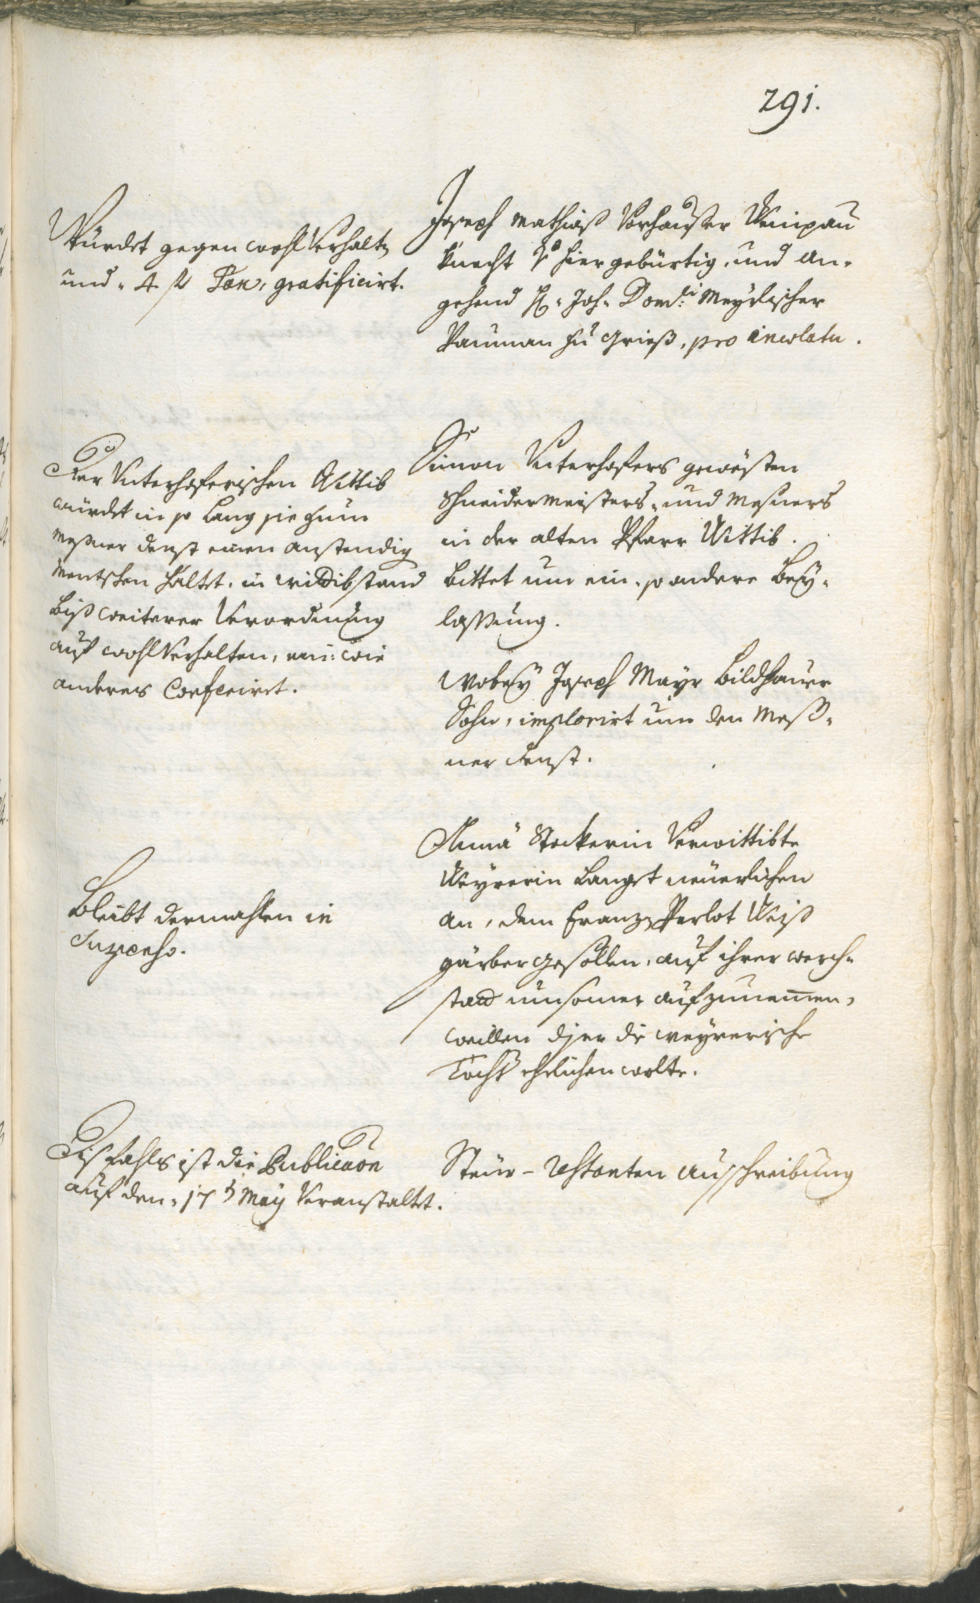 291.
Würdet gegen wohl Verhaltn
und 4 fl Tax, gratificirt.
Joseph Mathias Vorhauser
knecht hier gebürtig, und an-
gehend H: Joh: Domci: Meyrlischer
Pauman zu Grieß, pro incolatu.
Der Unterhoferischen Wittib
würdet in so lang sie zum
Meßner denst einen anstendig
Mentschen haltet, in widibstand
biß weiterer Verordnung
auf wohl Verhalten, ein: wie
anderes Conferirt.
Simon Unterhofers gewesten
Schneidermeisters, und Meßners
in der alten Pfarr Wittib.
bittet um ein, so andere Bey-
lassung.
Wobey Joseph Mayr Bildhauer
Sohn, implorirt um den Meß-
ner denst.
Bleibt dermahlen in
Suspenso.
Anna Stockerin Verwittibte
Weyrerin langet neuerlichen
an, dem Franz Perlot Weiß
gärber gesöllen, auf ihrer werch-
statt umsomer aufzunemmen,
weillen diser die weyrerische
Tocht ehelichen wolte.
Disfahls ist die Publication
auf den 17 t May Veranstaltet.
Steur-restanten ausschreibung